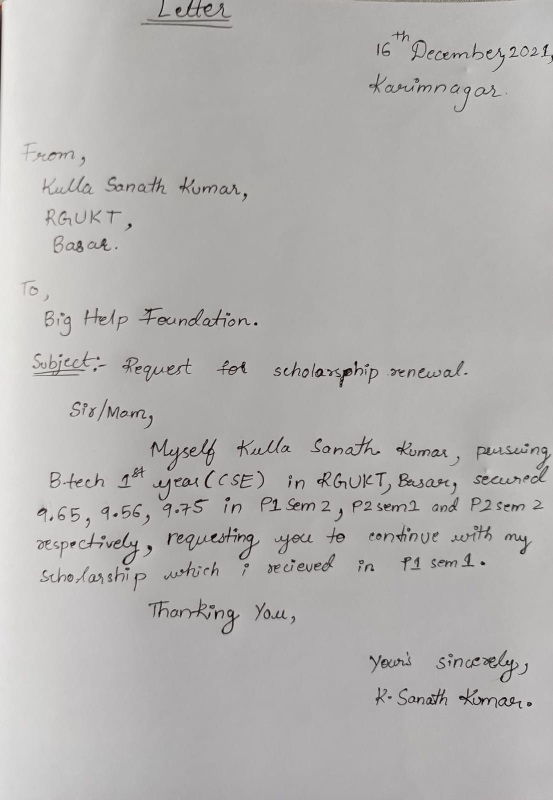 Letter
16th December, 2021,
Karimnagar.
From,
Kulla Sanath Kumar,
RGUKT,
Basar.
To,
Big Help Foundation.
Subject:- Request for scholarsphip renewal.
Sir/Mam,
Myself Kulla Sanath Kumar, pursuing
B-tech 1st year (CSE) in RGUKT, Basar, secured
9.65, 9.56, 9.75 in P1 sem 2, P2 sem 1 and P2 sem 2
respectively, requesting you to continue with my
scholarship which i recieved in P1 sem 1.
Thanking You,
Your's sincerely,
K. Sanath Kumar.